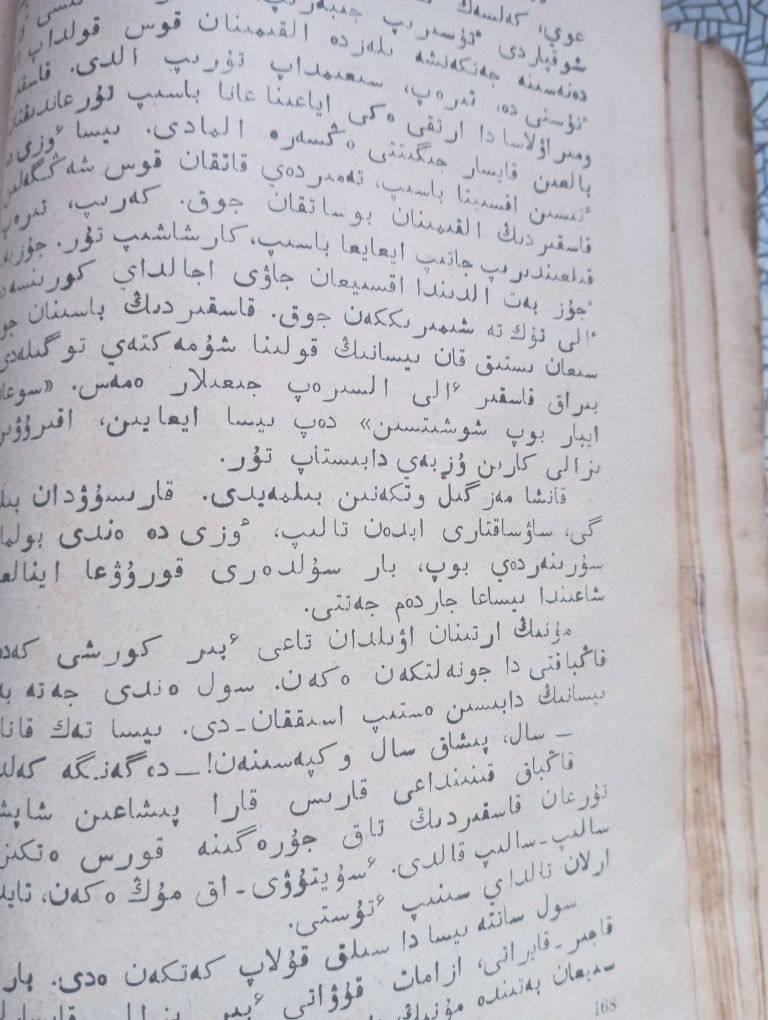 عوي، كەلسەڭ
شوقپاردى ٴتۇسىرىپ جىبەرىپ
دەنەسىنە جەتكەنشە ىلەزدە القىمىنان قوس قولداپ
ٴتۇستى دە، تىرەپ، سىعىمداپ تۇرىپ الدى. قاسقىر
ومىراۋلاسا دا ارتقى ەكى اياعىنا عانا باسىپ تۇرعاندىقتان
بالعىن قايسار جىگىتتى ەڭسەرە المادى. يسا ٴوزى دە
ٴتىسىن اقسيتا باسىپ، تەمىردەي قاتقان قوس شەڭگەلىن
قاسقىردىڭ القىمىنان بوساتقان جوق. كەرىپ، تىرەپ
قىلعىندىرىپ جاتىپ ايعايعا باسىپ، كارشاشىپ تۇر. جۇزبە
ٴجۇز بەت الدىندا اقسيعان جاۋى اجالداي كورىنسە
ٴالى تۇك تە شىمىرىككەن جوق. قاسقىردىڭ باسىنان
سىعان ىستىق قان يسانىڭ قولىنا شۇمەكتەي توگىلەدى
بىراق قاسقىر ٴالى السىرەپ جىعىلار ەمەس. «سوعان
ايبار بوپ شوشىتسىن» دەپ يسا ايعايىن، اقىرۋىن
بارىن ۇزبەي دابىستاپ تۇر.
قانشا مەزگىل وتكەنىن بىلمەيدى. قارىسۋدان
گى، ساۋساقتارى ابدەن تالىپ، ٴوزى دە ەندى بولما
سۇرىنەردەي بوپ، بار سۇلدەرى قورۋعا اينالعا
شاعىندا يساعا جاردەم جەتتى.
مۇنىڭ ارتىنان اۋىلدان تاعى ٴبىر كورشى كەدە
قاڭباقتى دا جونەلتكەن ەكەن. سول ەندى جەتە
يسانىڭ دابىسىن ەستىپ اسىققان-دى. يسا تەك قانا
— سال، پىشاق سال وكپەسىنەن! — دەگەنگە كەلدى
قاڭباق قىنىنداعى قارىس قارا پىشاعىن
تۇرعان قاسقىردىڭ تاق جۇرەگىنە قورس ەتكىز
سالىپ-سالىپ قالدى. ٴسۇيتۋى-اق مۇڭ ەكەن، تايد
ارلان تالداي سىنىپ ٴتۇستى.
سول ساتتە يسا دا سىلق قۇلاپ كەتكەن ەدى. بار
قاجىر-قايراتى، ازامات قۋاتى ٴبىر
سىيعان بەتىندە مۇنىڭ
168